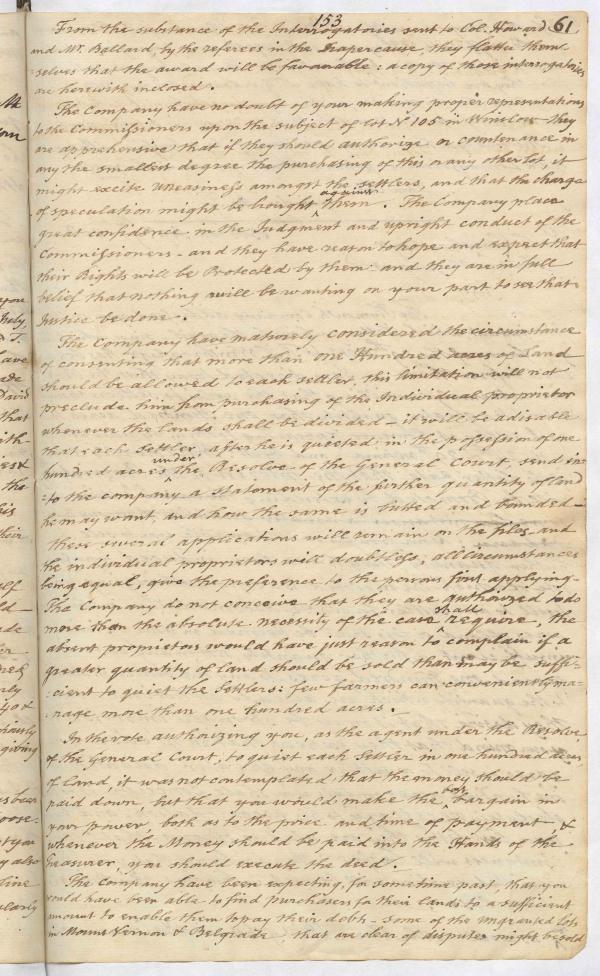 153
61
From the substance of the Interrogatories sent to Col. Howard
and Mr. Ballard, by the referees in the cause, they flatter them-
selves that the award will be favourable: a copy of those interrogatories
are herewith inclosed.
The Company have no doubt of your making proper representations
to the Commissioners upon the subject of lot N 105 in Winslow they
are apprehensive that if they should authorize or countenance in
any the smallest degree the purchasing of this or any other lot, it
might excite uneasiness amongst the settlers, and that the charge
against
of speculation might be brought ^ them. The Company place
great confidence in the Judgment and upright conduct of the
Commissioners - and they have reason to hope and expect that
their Rights will be Protected by them and they are in full
belief that nothing will be wanting on your part to see that
Justice be done.
The Company have maturely considered the circumstance
of consenting that more than one Hundred acres of Land
should be allowed to each settler, this limitation will not
preclude him from purchasing of the Individual proprietor
whenever the lands shall be divided - it will be adisable
that each Settler, after he is quieted in the possession of one
under
hundred acres ^ the Resolve of the General Court, send in-
-to the company a statement of the further quantity of land
he may want, and how the same is butted and bounded -
these several applications will remain on the files and
the individual proprietors will doubtless, all circumstances
being equal, give the preference to the persons first applying -
The Company do not conceive that they are authorized to do
shall
more than the absolute necessity of the case ^ require, the
absent proprietors would have just reason to complain if a
greater quantity of land should be sold than may be suffi-
cient to quiet the Settlers: few farmers can conveniently ma-
nage more than one hundred acres. -
In the vote authorizing you, as the agent under the Resolve
of the General Court, to quiet each Settler in one hundred acres
of land, it was not contemplated that the money should be
best
paid down, but that you would make the ^ bargain in
your power both as to the price and time of payment &
whenever the Money should be paid into the Hands of the
Treasurer, you should execute the deed.
The Company have been expecting, for some time past, that you
would have been able to find purchasers for their lands to a sufficient
amount to enable them to pay their debts - some of the ungranted lots
in Mount Vernon & Belgrade that are clear of dispute might be sold